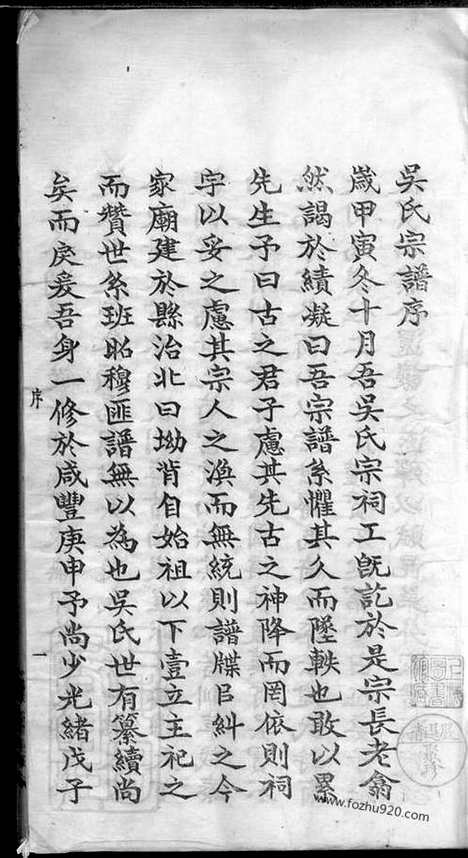 吳氏宗譜序
歲甲寅冬十月吾吳氏宗祠工旣訖於是宗長老翕
然謁於績凝曰吾宗譜系懼其久而墜軼也敢以累
先生予曰古之君子慮其先古之神降而罔依則祠
宇以妥之慮其宗人之渙而無統則譜牒㠯糾之今
家廟建於縣治北曰坳背自始祖以下壹立主祀之
而贊世系班昭穆匪譜無以為也吳氏世有纂續尚
矣而戾爰吾身一修於咸豐庚申予尚少光緒戊子
序
一
www.fozhu920.com